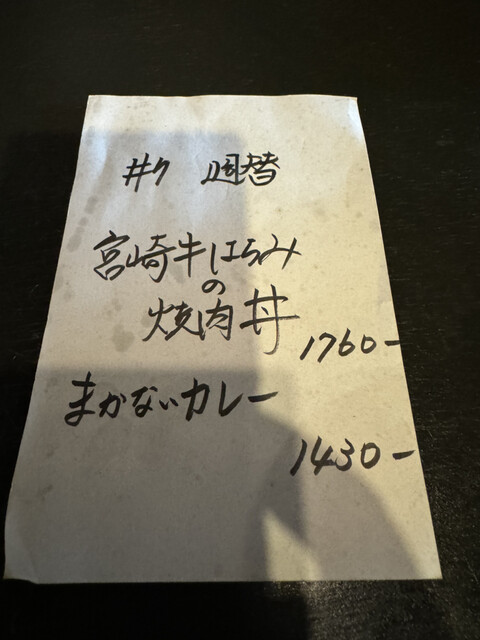 #7 週替
宮崎牛はらみ
の
焼肉丼
1760-
まかないカレー
1430-